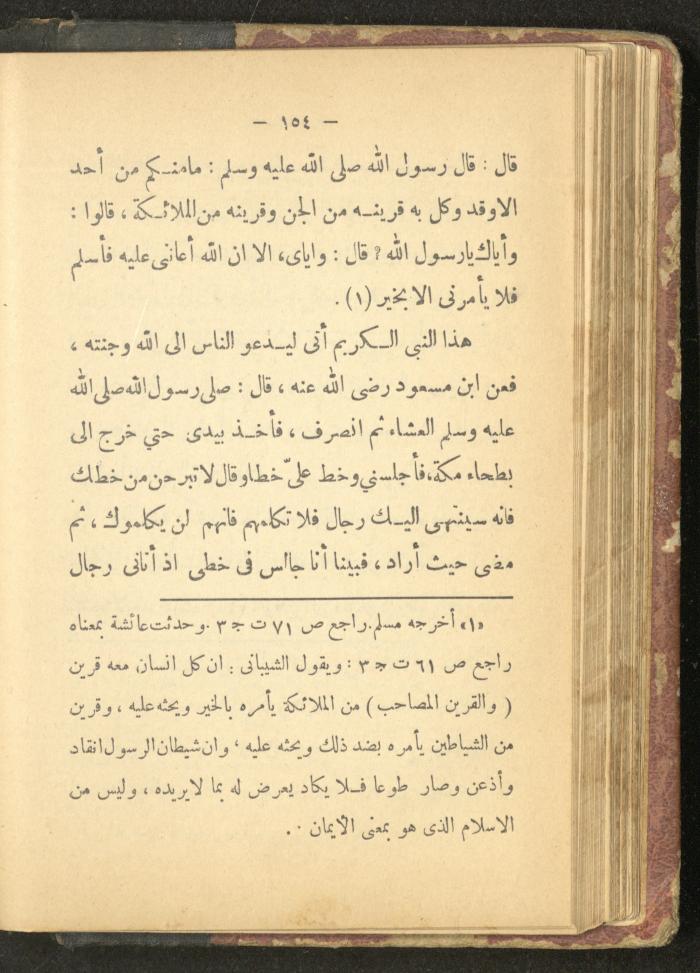 — ١٥٤ —
قال : قال رسول الله صلى الله عليه وسلم : مامنـكم من أحد
الاوقد وكل به قرينـه من الجن وقرينه من الملائـكة ، قالوا :
وأياك يارسول الله ؟ قال : واياى، الا ان الله أعانى عليه فأسلم
فلا يأمرنى الا بخير (١) .
هذا النبى الـكريم أتى ليـدعو الناس الى الله وجنته ،
فعن ابن مسعود رضى الله عنه ، قال : صلى رسول الله صلى الله
عليه وسلم العشاء ثم انصرف ، فأخـذ بيدى حتي خرج الى
بطحاء مكة، فأجلسني وخط علىّ خطا وقال لا تبرحن من خطك
فانه سينتهى اليـك رجال فلا تكلمهم فانهم لن يكلموك ، ثم
مضى حيث أراد ، فبينا أنا جالس فى خطى اذ أتانى رجال
«١» أخرجه مسلم. راجع ص ٧١ ت ج ٣ . وحدثت عائشة بمعناه
راجع ص ٦١ ت ج ٣ : ويقول الشيبانى : ان كل انسان معه قرين
( والقرين المصاحب ) من الملائكة يأمره بالخير ويحثه عليه ، وقرين
من الشياطين يأمره بضد ذلك ويحثه عليه ، وان شيطان الرسول انقاد
وأذعن وصار طوعا فـلا يكاد يعرض له بما لا يريده ، وليس من
الاسلام الذى هو بمعنى الأيمان .